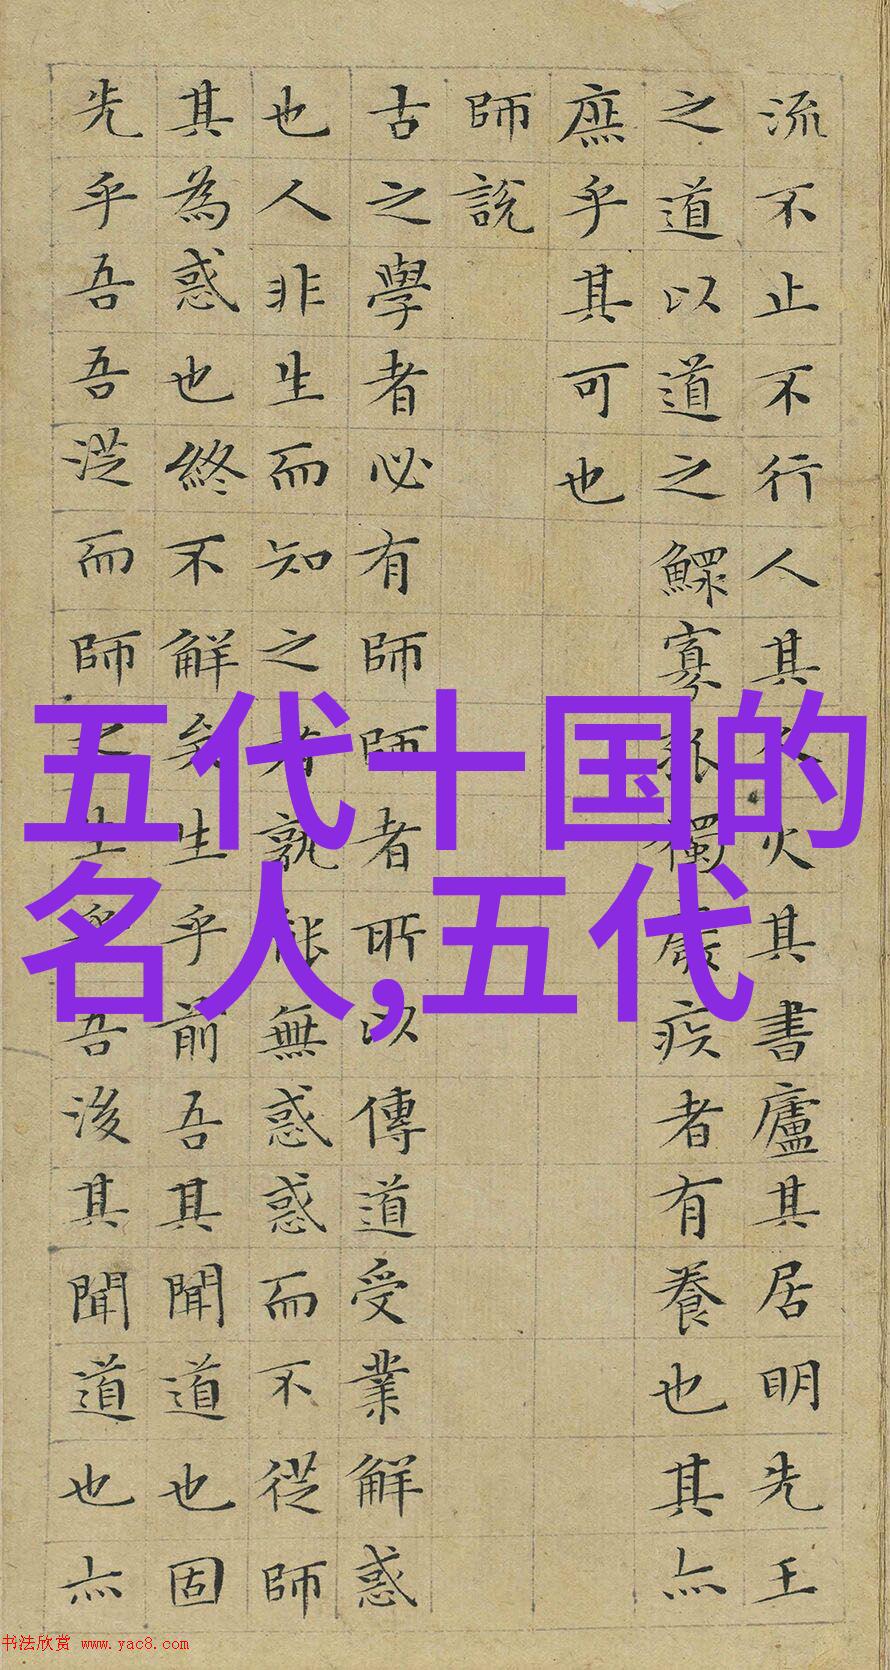 流不止不行人其人火其書廬其居明先王
之道以道之鰥寡孤獨廢疾者有養也其亦
庶乎其可也
師說
古之學者必有師師者所以傳道受業解惑
也人非生而知之者孰能無惑惑而不從師
其為惑也終不解矣生乎前吾其聞道也固
先乎吾吾從而師之生乎吾後其聞道也亦
五代十国的
名人,五代
书法欣赏 www.yac8.com